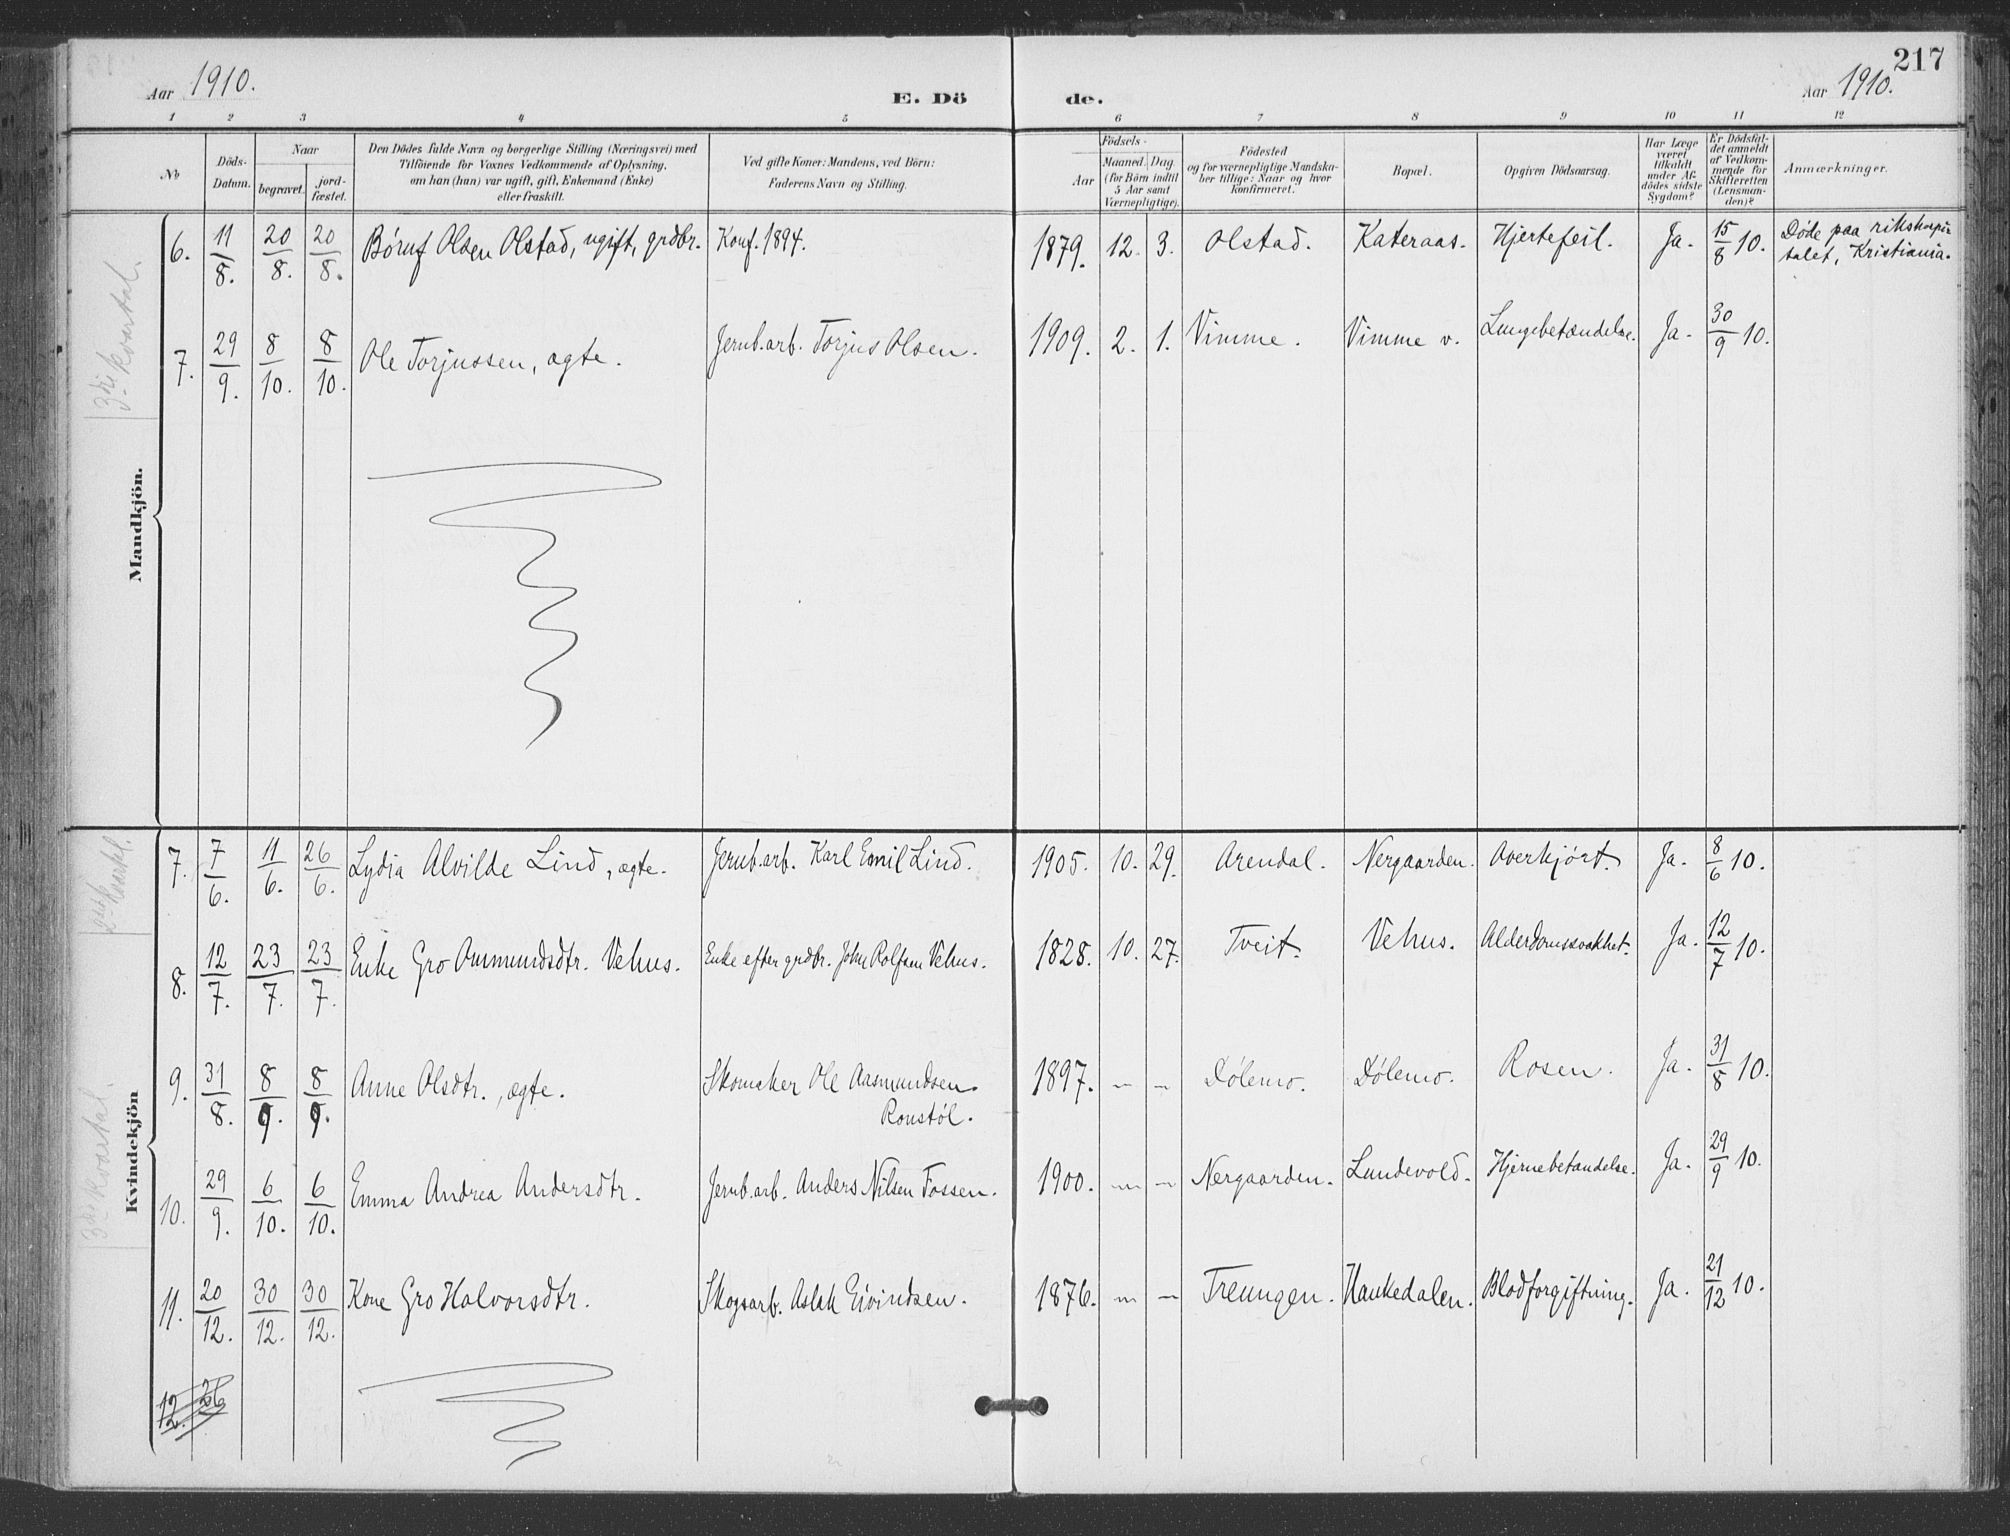 217
Aar 1910.
E. Dö
de.
Aar 1910.
1 2 3 4 5 6 7 8 9 10 11 12
No
Döds-
Datum.
Naar
begravet.
jord-
fæstet.
Den Dödes fulde Navn og borgerlige Stilling (Næringsvei) med
Tilföiende for Voxnes Vedkommende af Oplysning,
om han (hun) var ugift, gift, Enkemand (Enke)
eller fraskilt.
Ved gifte Koner: Mandens, ved Börn:
Faderens Navn og Stilling.
Aar
Födsels-
Maaned. Dag
(for Börn indtil
5 Aar samt
Værnepligtige).
Födested
og for værnepligtige Mandska-
ber tillige: Naar og hvor
konfirmeret.
Bopæl.
Opgiven Dödsaarsag.
Har Læge
været
tilkaldt
under Af-
dödes sidste
Sygdom?
Er Dödsfal-
det anmeldt
af Vedkom-
mende for
Skifteretten
(Lensman-
den)?
Anmærkninger.
3die kvartal.
Mandkjön.
6. 11/8. 20/8. 20/8. Børuf Olsen Olstad, ugift, grdbr. Konf. 1894. 1879. 12. 3. Olstad. Kateraas. Hjertefeil. Ja. 15/8 10. Døde paa rikshospi
talet, Kristiania.
7. 29/9. 8/10. 8/10. Ole Torjussen, ægte. Jernb.arb. Torjus Olsen. 1909. 2. 1. Vimme. Vimme v. Lungebetændelse. Ja. 30/9 10.
Kvindekjön
7. 7/6. 11/6. 26/6. Lydia Alvilde Lind, ægte. Jernb.arb. Karl Emil Lind. 1905. 10. 29. Arendal. Nergaarden. Overkjørt. Ja. 8/6 10.
8. 12/7. 23/7. 23/7. Enke Gro Aummundsdtr. Vehus. Enke efter grdbr. John Rolfsen Vehus. 1828. 10. 27. Tveit. Vehus. Alderdomssvakhet. Ja. 12/7 10.
3die kvartal.
9. 31/8. 8/9. 8/9. Anne Olsdtr., ægte. Skomaker Ole Aasmundsen 1897. — — Dølemo. Dølemo. Rosen. Ja. 31/8 10.
Ronstøl.
10. 29/9. 6/10. 6/10. Emma Andrea Andersdtr. Jernb.arb. Anders Nilsen Fossen. 1900. — — Nergaarden. Lundevold. Hjernebetændelse. Ja. 29/9 10.
11. 20/12. 30/12. 30/12. Kone Gro Halvorsdtr. Skogsarb. Aslak Eivindsen. 1876. — — Treungen. Haukedalen. Blodforgiftning. Ja. 21/12 10.
12. 26